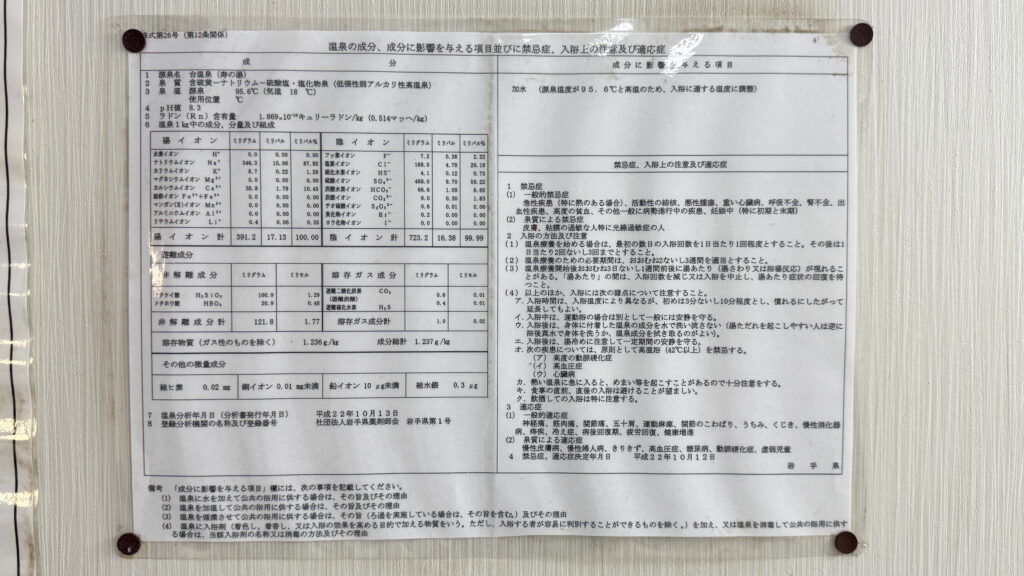 式第26号（第12条関係）
温泉の成分、成分に影響を与える項目並びに禁忌症、入浴上の注意及び適応症
成 分
1 源泉名 台温泉（寿の湯）
2 泉 質 含硫黄ーナトリウムー硫酸塩・塩化物泉（低張性弱アルカリ性高温泉）
3 泉 温 源泉 95.6℃（気温 18 ℃）
使用位置 ℃
4 pH値 8.3
5 ラドン（Rn）含有量 1.869×10⁻¹⁰キュリーラドン/kg（0.514マッヘ/kg）
6 温泉1kg中の成分、分量及び組成
陽イオン ミリグラム ミリバル ミリバル% 陰イオン ミリグラム ミリバル ミリバル%
水素イオン H⁺ 0.0 0.00 0.00 フッ素イオン F⁻ 7.2 0.38 2.32
ナトリウムイオン Na⁺ 346.3 15.06 87.92 塩素イオン Cl⁻ 169.5 4.78 29.18
カリウムイオン K⁺ 8.7 0.22 1.28 硫化水素イオン HS⁻ 4.1 0.12 0.73
マグネシウムイオン Mg²⁺ 0.0 0.00 0.00 硫酸イオン SO₄²⁻ 466.0 9.70 59.22
カルシウムイオン Ca²⁺ 35.8 1.79 10.45 炭酸水素イオン HCO₃⁻ 66.6 1.09 6.65
炭酸イオン CO₃²⁻ 9.0 0.30 1.83
マンガン(Ⅱ)イオン Mn²⁺ 0.0 0.00 0.00 チオ硫酸イオン S₂O₃²⁻ 0.6 0.01 0.06
アルミニウムイオン Al³⁺ 0.0 0.00 0.00 臭化物イオン Br⁻ 0.2 0.00 0.00
リチウムイオン Li⁺ 0.4 0.06 0.35 ヨウ化物イオン I⁻ 0.0 0.00 0.00
陽イオン計 391.2 17.13 100.00 陰イオン計 723.2 16.38 99.99
遊離成分
非解離成分 ミリグラム ミリモル 溶存ガス成分 ミリグラム ミリモル
メタケイ酸 H₂SiO₃ 100.9 1.29 遊離二酸化炭素 CO₂ 0.6 0.01
（遊離炭酸）
メタホウ酸 HBO₂ 20.9 0.48 遊離硫化水素 H₂S 0.4 0.01
非解離成分計 121.8 1.77 溶存ガス成分計 1.0 0.02
溶存物質（ガス性のものを除く） 1.236g/kg 成分総計 1.237g/kg
その他の微量成分
総ヒ素 0.02 mg 銅イオン 0.01 mg未満 鉛イオン 10 μg未満 総水銀 0.3 μg
7 温泉分析年月日（分析書発行年月日） 平成22年10月13日
8 登録分析機関の名称及び登録番号 社団法人岩手県薬剤師会 岩手県第1号
成分に影響を与える項目
加水 （源泉温度が95．6℃と高温のため、入浴に適する温度に調整）
禁忌症、入浴上の注意及び適応症
1 禁忌症
(1) 一般的禁忌症
急性疾患（特に熱のある場合）、活動性の結核、悪性腫瘍、重い心臓病、呼吸不全、腎不全、出
血性疾患、高度の貧血、その他一般に病勢進行中の疾患、妊娠中（特に初期と末期）
(2) 泉質による禁忌症
皮膚、粘膜の過敏な人特に光線過敏症の人
2 入浴の方法及び注意
(1) 温泉療養を始める場合は、最初の数日の入浴回数を1日当たり1回程度とすること。その後は1
日当たり2回ないし3回までとすること。
(2) 温泉療養のための必要期間は、おおむね2ないし3週間を適当とすること。
(3) 温泉療養開始後おおむね3日ないし1週間前後に湯あたり（湯さわり又は浴場反応）が現れるこ
とがある。「湯あたり」の間は、入浴回数を減じ又は入浴を中止し、湯あたり症状の回復を待つ
こと。
(4) 以上のほか、入浴には次の諸点について注意すること。
ア．入浴時間は、入浴温度により異なるが、初めは3分ないし10分程度とし、慣れるにしたがって
延長してもよい。
イ．入浴中は、運動浴の場合は別として一般には安静を守る。
ウ．入浴後は、身体に付着した温泉の成分を水で洗い流さない（湯ただれを起こしやすい人は逆に
浴後真水で身体を洗うか、温泉成分を拭き取るのがよい）。
エ．入浴後は、湯冷めに注意して一定期間の安静を守る。
オ．次の疾患については、原則として高温浴（42℃以上）を禁忌する。
（ア）高度の動脈硬化症
（イ）高血圧症
（ウ）心臓病
カ．熱い温泉に急に入ると、めまい等を起こすことがあるので十分注意をする。
キ．食事の直前、直後の入浴は避けることが望ましい。
ク．飲酒しての入浴は特に注意する。
3 適応症
(1) 一般的適応症
神経痛、筋肉痛、関節痛、五十肩、運動麻痺、関節のこわばり、うちみ、くじき、慢性消化器
病、痔疾、冷え症、病後回復期、疲労回復、健康増進
(2) 泉質による適応症
慢性皮膚病、慢性婦人病、きりきず、高血圧症、糖尿病、動脈硬化症、虚弱児童
4 禁忌症、適応症決定年月日 平成22年10月12日
岩手県
備考 「成分に影響を与える項目」欄には、次の事項を記載してください。
(1) 温泉に水を加えて公共の浴用に供する場合は、その旨及びその理由
(2) 温泉を加温して公共の浴用に供する場合は、その旨及びその理由
(3) 温泉を循環させて公共の浴用に供する場合は、その旨（ろ過を実施している場合は、その旨を含む。）及びその理由
(4) 温泉に入浴剤（着色し、着香し、又は入浴の効果を高める目的で加える物質をいう。ただし、入浴する者が容易に判別することができるものを除く。）を加え、又は温泉を消毒して公共の浴用に供す
る場合は、当該入浴剤の名称又は消毒の方法及びその理由